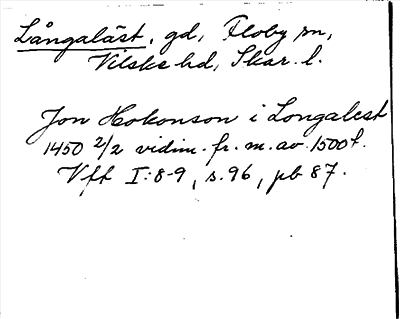 Långaläst, gd, Floby sn,
Vilske hd, Skar. l.
Jon Hokonson i Longalest
1450 2/2 vidim. fr. m. av 1500t.
Vft I:8-9, s. 96, pb 87.